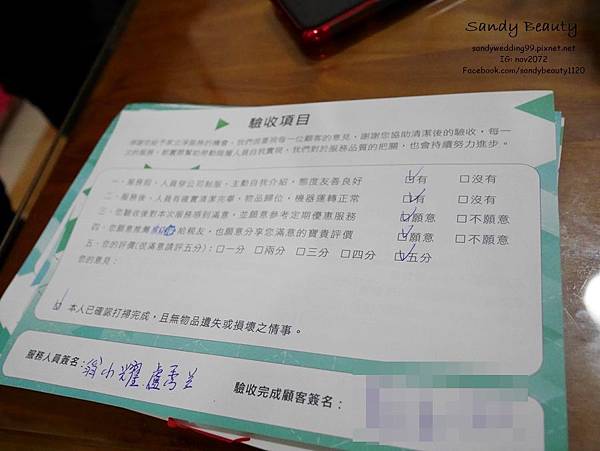 Sandy Beauty
sandywedding99.pixnet.net
IG: nov2072
Facebook.com/sandybeauty1120
驗收項目
感謝您給予家立淨服務的機會，我們很重視每一位顧客的意見，謝謝您協助清潔後的驗收，每一
次的服務，都實際幫助勞動階層人員自我實現，我們對於服務品質的把關，也會持續努力進步。
一、服務前，人員穿公司制服、主動自我介紹，態度友善良好 ☑有 □沒有
二、服務後，人員有確實清潔完畢，物品歸位，機器運轉正常 ☑有 □沒有
三、您驗收後對本次服務感到滿意，並願意參考定期優惠服務 ☑願意 □不願意
四、您願意推薦 給親友，也願意分享您滿意的寶貴評價 ☑願意 □不願意
五、您的評價(很滿意請評五分)：□一分 □兩分 □三分 □四分 ☑五分
您的意見：
☑ 本人已確認打掃完成，且無物品遺失或損壞之情事。
服務人員簽名：翁小耀 盧秀兰
驗收完成顧客簽名：